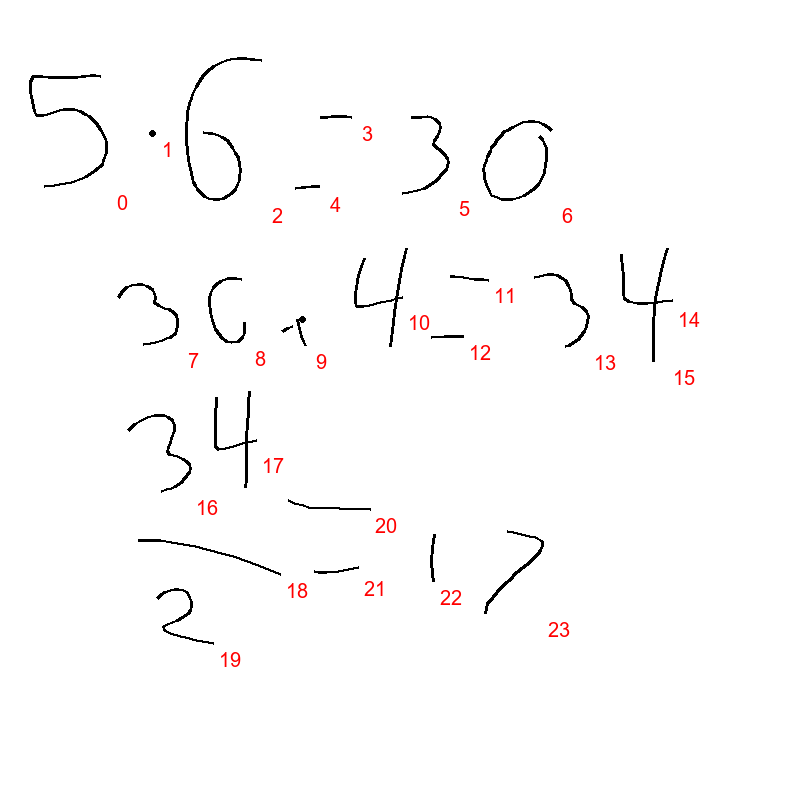 5·6=30
0 1 2 3 4 5 6
30+4=34
7 8 9 10 11 12 13 14 15
34
16 17
—— = 17
18 20 21 22 23
2
19